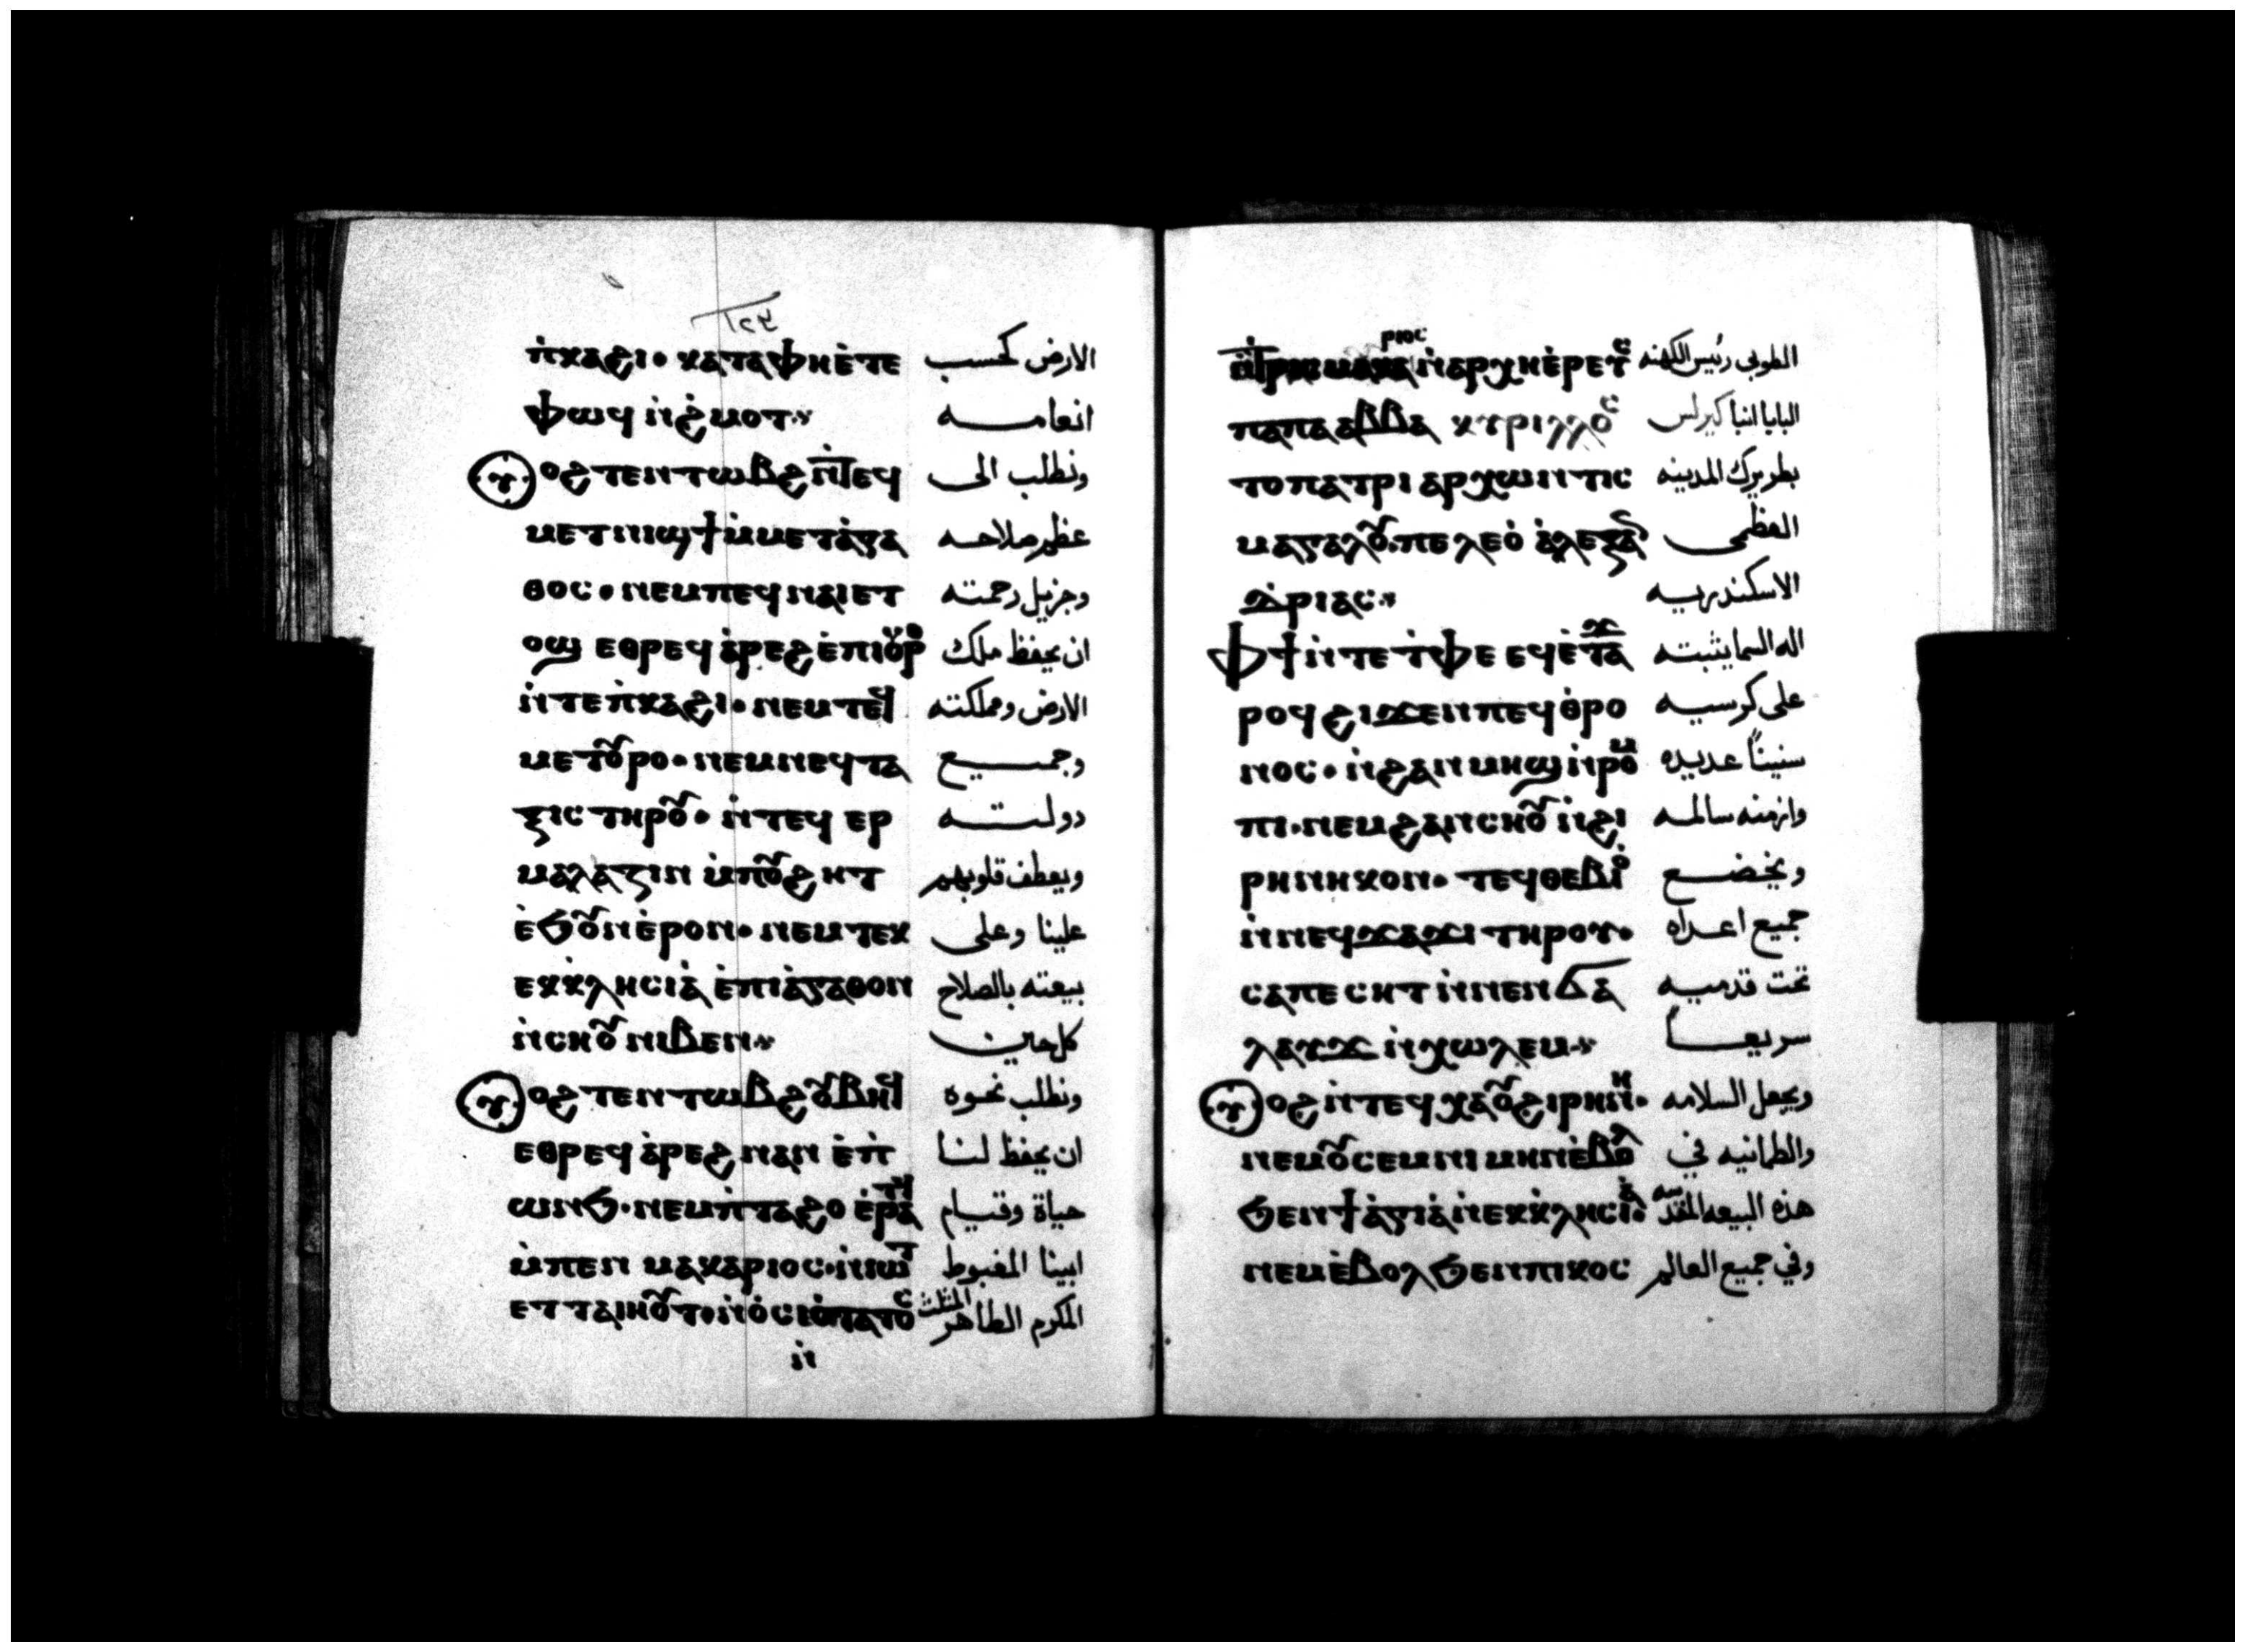 ١٢٩
ⲡ̀ⲕⲁϩⲓ· ⲕⲁⲧⲁⲫⲏⲉ̀ⲧⲉ الارض كحسب
ⲫⲱϥ ⲛ̀ϩ̀ⲙⲟⲧ⁘ انعامــه
ⲟϩ ⲧⲉⲛⲧⲱⲃϩ ⲛ̀ⲧⲉϥ ونطلب الى
ⲙⲉⲧⲛⲓϣϯ ⲙ̀ⲙⲉⲧⲁ̀ⲅⲁ عظم صلاحه
ⲑⲟⲥ· ⲛⲉⲙⲡⲉϥⲛⲁⲓⲉⲧ وجزيل رحمته
ⲟϣ ⲉⲑⲣⲉϥ ⲁ̀ⲣⲉϩ ⲉ̀ⲡⲓⲟⲩⲣⲟ ان يحفظ ملك
ⲛ̀ⲧⲉⲡ̀ⲕⲁϩⲓ· ⲛⲉⲙⲧⲉϥ الارض ومملكته
ⲙⲉⲧⲟⲩⲣⲟ· ⲛⲉⲙⲛⲉϥⲧⲁ وجمــيع
ⲝⲓⲥ ⲧⲏⲣⲟⲩ· ⲛ̀ⲧⲉϥ ⲉⲣ دولتــه
ⲙⲁⲗⲁⲍⲓⲛ ⲙ̀ⲡⲟⲩϩⲏⲧ ويعطف قلوبهم
ⲉ̀ϧⲟⲩⲛⲉ̀ⲣⲟⲛ· ⲛⲉⲙⲧⲉⲕ علينا وعلى
ⲉⲕⲕ̀ⲗⲏⲥⲓⲁ̀ ⲉ̀ⲡⲓⲁ̀ⲅⲁⲑⲟⲛ بيعته بالصلاح
ⲛ̀ⲥⲏⲟⲩ ⲛⲓⲃⲉⲛ⁘ كل حين
ⲟϩ ⲧⲉⲛⲧⲱⲃϩ ⲟⲩⲃⲏϥ ونطلب نحوه
ⲉⲑⲣⲉϥ ⲁ̀ⲣⲉϩ ⲛⲁⲛ ⲉ̀ⲡ̀ ان يحفظ لنــا
ⲱⲛϧ· ⲛⲉⲙⲡ̀ⲧⲁϩⲟ ⲉ̀ⲣⲁⲧϥ حياة وقيــام
ⲙ̀ⲡⲉⲛ ⲙⲁⲕⲁⲣⲓⲟⲥ· ⲛ̀ⲓⲱⲧ ابينا المغبوط
ⲉⲧⲧⲁⲓⲏⲟⲩⲧ· ⲛ̀ⲟ̀ⲥⲓⲱ̀ⲧⲁⲧⲟⲥ المكرم الطاهر المثلث
ⲛ̀
ⲣⲓⲟⲥ
ⲛ̀ⲁⲣⲭⲏⲉ̀ⲣⲉⲧⲥ الطوبى رئيس الكهنه
ⲡⲁⲡⲁ ⲁⲃⲃⲁ ⲕⲩⲣⲓⲗⲗⲟⲥ البابا انبا كيرلس
ⲧⲟⲡⲁⲧⲣⲓ ⲁⲣⲭⲱⲛ ⲧⲓⲥ بطريرك المدينه
ⲙⲁⲅⲁⲗⲟⲩ· ⲡⲉⲗⲉⲟ̀ ⲁ̀ⲗⲉⲝⲁⲛ العظمى
ⲇ̀ⲣⲓⲁⲥ⁘ الاسكندريــه
ⲫϯ ⲛ̀ⲧⲉⲧ̀ⲫⲉ ⲉϥⲉ̀ⲧⲁϫ اله السما يثبته
ⲣⲟϥ ϩⲓϫⲉⲛⲡⲉϥⲑ̀ⲣⲟ على كرسيــه
ⲛⲟⲥ· ⲛ̀ϩⲁⲛ ⲙⲏϣ ⲛ̀ⲣⲟⲙ سنيناً عديده
ⲡⲓ· ⲛⲉⲙϩⲁⲛⲥⲏⲟⲩ ⲛ̀ϩⲓ وازمنه سالمــه
ⲣⲏⲛⲏⲕⲟⲛ· ⲧⲉϥⲑⲉⲃⲓⲟ̀ ويخضــع
ⲛ̀ⲛⲉϥϫⲁϫⲓ ⲧⲏⲣⲟⲩ· جميع اعــداه
ⲥⲁⲡⲉⲥⲏⲧ ⲛ̀ⲛⲉⲛϭⲁ تحت قدميــه
ⲗⲁⲩϫ ⲛ̀ⲭⲱⲗⲉⲙ⁘ سريعــاً
ⲟϩ ⲛ̀ⲧⲉϥ ⲭⲁⲟⲩϩⲓⲣⲏⲛⲏ· ويجعل السلامه
ⲛⲉⲙⲟⲩⲥⲉⲙⲛⲓ ⲙⲏⲛⲉ̀ⲃⲟⲗ والطمانيه في
ϧⲉⲛϯⲁ̀ⲅⲓⲁ̀ ⲛ̀ⲉⲕⲕ̀ⲗⲏⲥⲓⲁ̀· هذه البيعه المقدسه
ⲛⲉⲙⲉ̀ⲃⲟⲗϧⲉⲛⲡⲓⲕⲟⲥ وفي جميع العالم